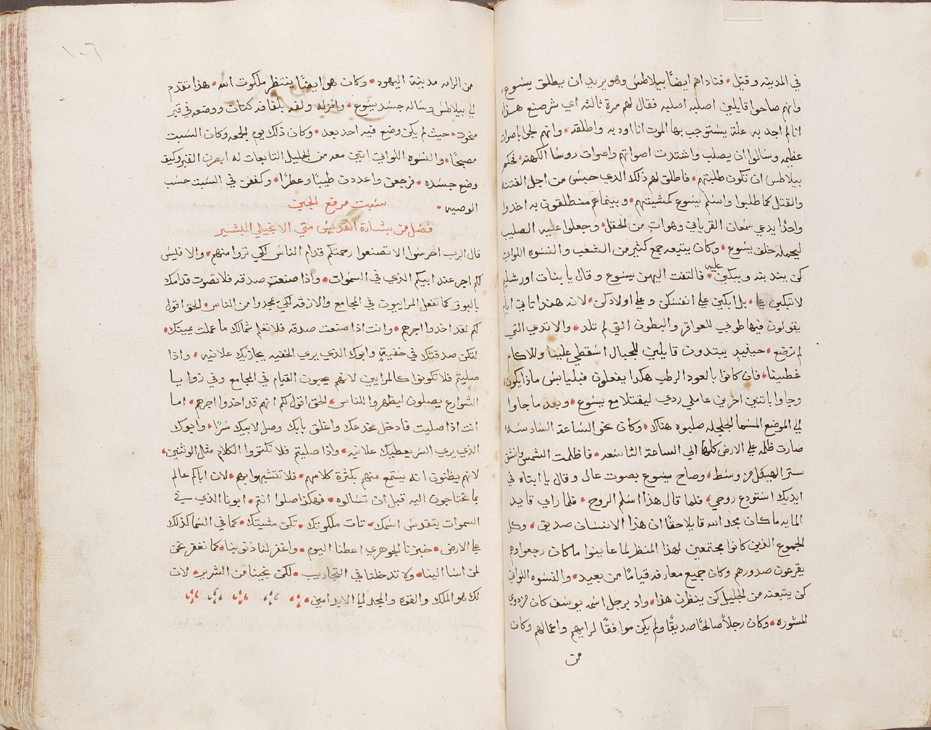 في المدينه وقتل • فناداهم ايضًا بيلاطس وهو يريد ان يطلق يسوع
وانهم صاحوا قايلين اصلبه اصلبه فقال لهم مرة ثالثه اي شر صنع هذا
انا لم اجد به علة يستوجب بها الموت انا اودبه واطلقه • وانهم لجوا باصوات
عظيمه وسالوا ان يصلب واشتدت اصواتهم واصوات روسا الكهنه • فحكم
بيلاطس ان تكون طلبتهم • فاطلق لهم ذلك الذي حبس من اجل الفتنه
والقتل كما طلبوا واسلم يسوع لمشيتهم • وبينما هم منطلقون به اخذوا
واحدًا يدعي سمعان القرياني وهوات من الحقل • وجعلوا عليه الصليب
ليحمله خلف يسوع • وكان يتبعه جمع كثير من الشعب والنسوه اللواتي
كن يندبنه ويبكين عليه • فالتفت اليهن يسوع وقال يا بنات اورشليم
لا تبكين علي • بل ابكين علي انفسكن وعلي اولادكن • لانه هوذا تاتي ايام
يقولون فيها طوبي للعواقر والبطون التي لم تلد • والاثدي التي
لم ترضع • حينيذ يبتدون قايلين للجبال اسقطي علينا وللاكام
غطينا • فان كانوا بالعود الرطب هكدا يفعلون فباليابس ماذا يكون
وجاوا باثنين اخرين عاملي ردي ليقتلا مع يسوع • وبعد ما جاوا
الي الموضع المسما الجلجله صلبوه هناك • وكان نحو الساعة السادسه
صارت ظلمه علي الارض كلها الي الساعة التاسعه • فاظلمت الشمس وانشق
ستر الهيكل من وسط • وصاح يسوع بصوت عال وقال يا ابتاه في
ايديك استودع روحي • فلما قال هذا اسلم الروح • فلما راي قايد
المايه ما كان مجد الله قايلا حقا ان هذا الانسان صديق • وكل
الجموع الذين كانوا مجتمعين لهذا المنظر لما عاينوا ما كان رجعوا وهم
يقرعون صدورهم وكان جميع معارفه قيامًا من بعيد • والنسوه اللواتي
كن يتبعنه من الجليل كن ينظرن هذا • واد برجل اسمه يوسف كان
المشوره • وكان رجلًا صالحًا صديقًا ولم يكن موافقًا لرايهم واعمالهم وكان
من
١٠٦
من الرامه مدينة اليهود • وكان هو ايضًا ينتظر ملكوت الله • هذا تقدم
الي بيلاطس وساله جسد يسوع • وانزله ولفه بلفافه كتان ووضعه في قبر
منحوت • حيث لم يكن وضع فيه احد بعد • وكان ذلك يوم الجمعه وكان السبت
مصبحًا • والنسوه اللواتي اتين معه من الجليل التابعات له ابصرن القبر وكيف
وضع جسده • فرجعن واعددن طيبًا وعطرًا • وكففن في السبت حسب
الوصيه •
سبت مرفع الجبن
فصل من بشارة القديس متي الانجيلي البشير
قال الرب احرسوا الا تصنعوا رحمتكم قدام الناس لكي تراوا منهم • والا فليس
لكم اجر عند ابيكم الذي في السموات • واذا صنعت صدقه فلا تصوت قدامك
بالبوق كما تفعل المراييون في المجامع والازقه لكي يمجدوا من الناس • الحق اقول
لكم لقد اخذوا اجرهم • وانت اذا صنعت صدقه فلا تعلم شمالك ما عملت يمينك •
لتكن صدقتك في خفيه وابوك الذي يري الخفيه يجازيك علانيه • واذا
صليتم فلا تكونوا كالمرايين لانهم يحبون القيام في المجامع وفي زوايا
الشوارع يصلون ليظهروا للناس • الحق اقول لكم انهم قد اخذوا اجرهم • اما
انت اذا صليت فادخل مخدعك واغلق بابك وصل لابيك سرًا • وابوك
الذي يري السر يعطيك علانيه • واذا صليتم فلا تكثروا الكلام مثل الوثنيين •
لانهم يظنون انه يستمع منهم بكثرة كلامهم • فلا تتشبهوا بهم • لان اباكم عالم
بما تحتاجون اليه قبل ان تسالوه • فهكذا صلوا انتم • ابونا الذي في
السموات يتقدس اسمك • تات ملكوتك • تكن مشيتك • كما في السما كذلك
علي الارض • خبزنا الجوهري اعطنا اليوم • واغفر لنا ذنوبنا • كما نغفر نحن
لمن اسا الينا • ولا تدخلنا في التجاريب • لكن نجينا من الشرير • لان
لك هو الملك والقوه والمجد الي الابد امين •